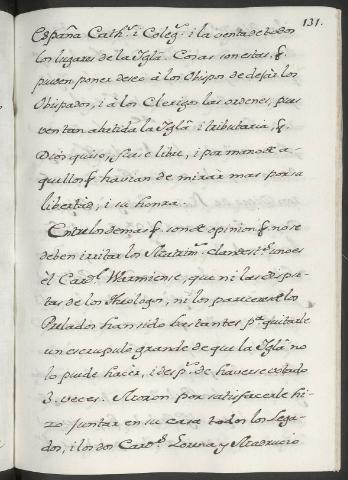 131.
España Cath.ª i Coleg.ª i la venta de todos
los lugares de la Iglã. Cosas son estas, q̃.
pueden poner deseo à los Obispos de dejàr los
Obispados, i à los Clerigos las ordenes, pues
ven tan abatida la Iglã i tributaria, q̃.
Dios quiso, fuese libre, i por mano de a-
quellos q̃ havian de miràr mas por su
libertad, i su honra.
Entre los demas q̃. son de opinion q̃. no se
deben irritar los Matrim.ºˢ clandest.ºˢ uno es
el Card.ˡ Warmiense, que ni las dispu-
tas de los Theologos, ni los pareceres de los
Prelados han sido bastantes p.ª quitarle
un escrupulo grande de que la Iglã no
lo puede hacèr, i desp.ˢ de haverse votado
3. veces. Moron por satisfacerle hi-
zo juntar en su casa todos los Lega-
dos, i los dos Card.ˢ Lorena y Madrucio